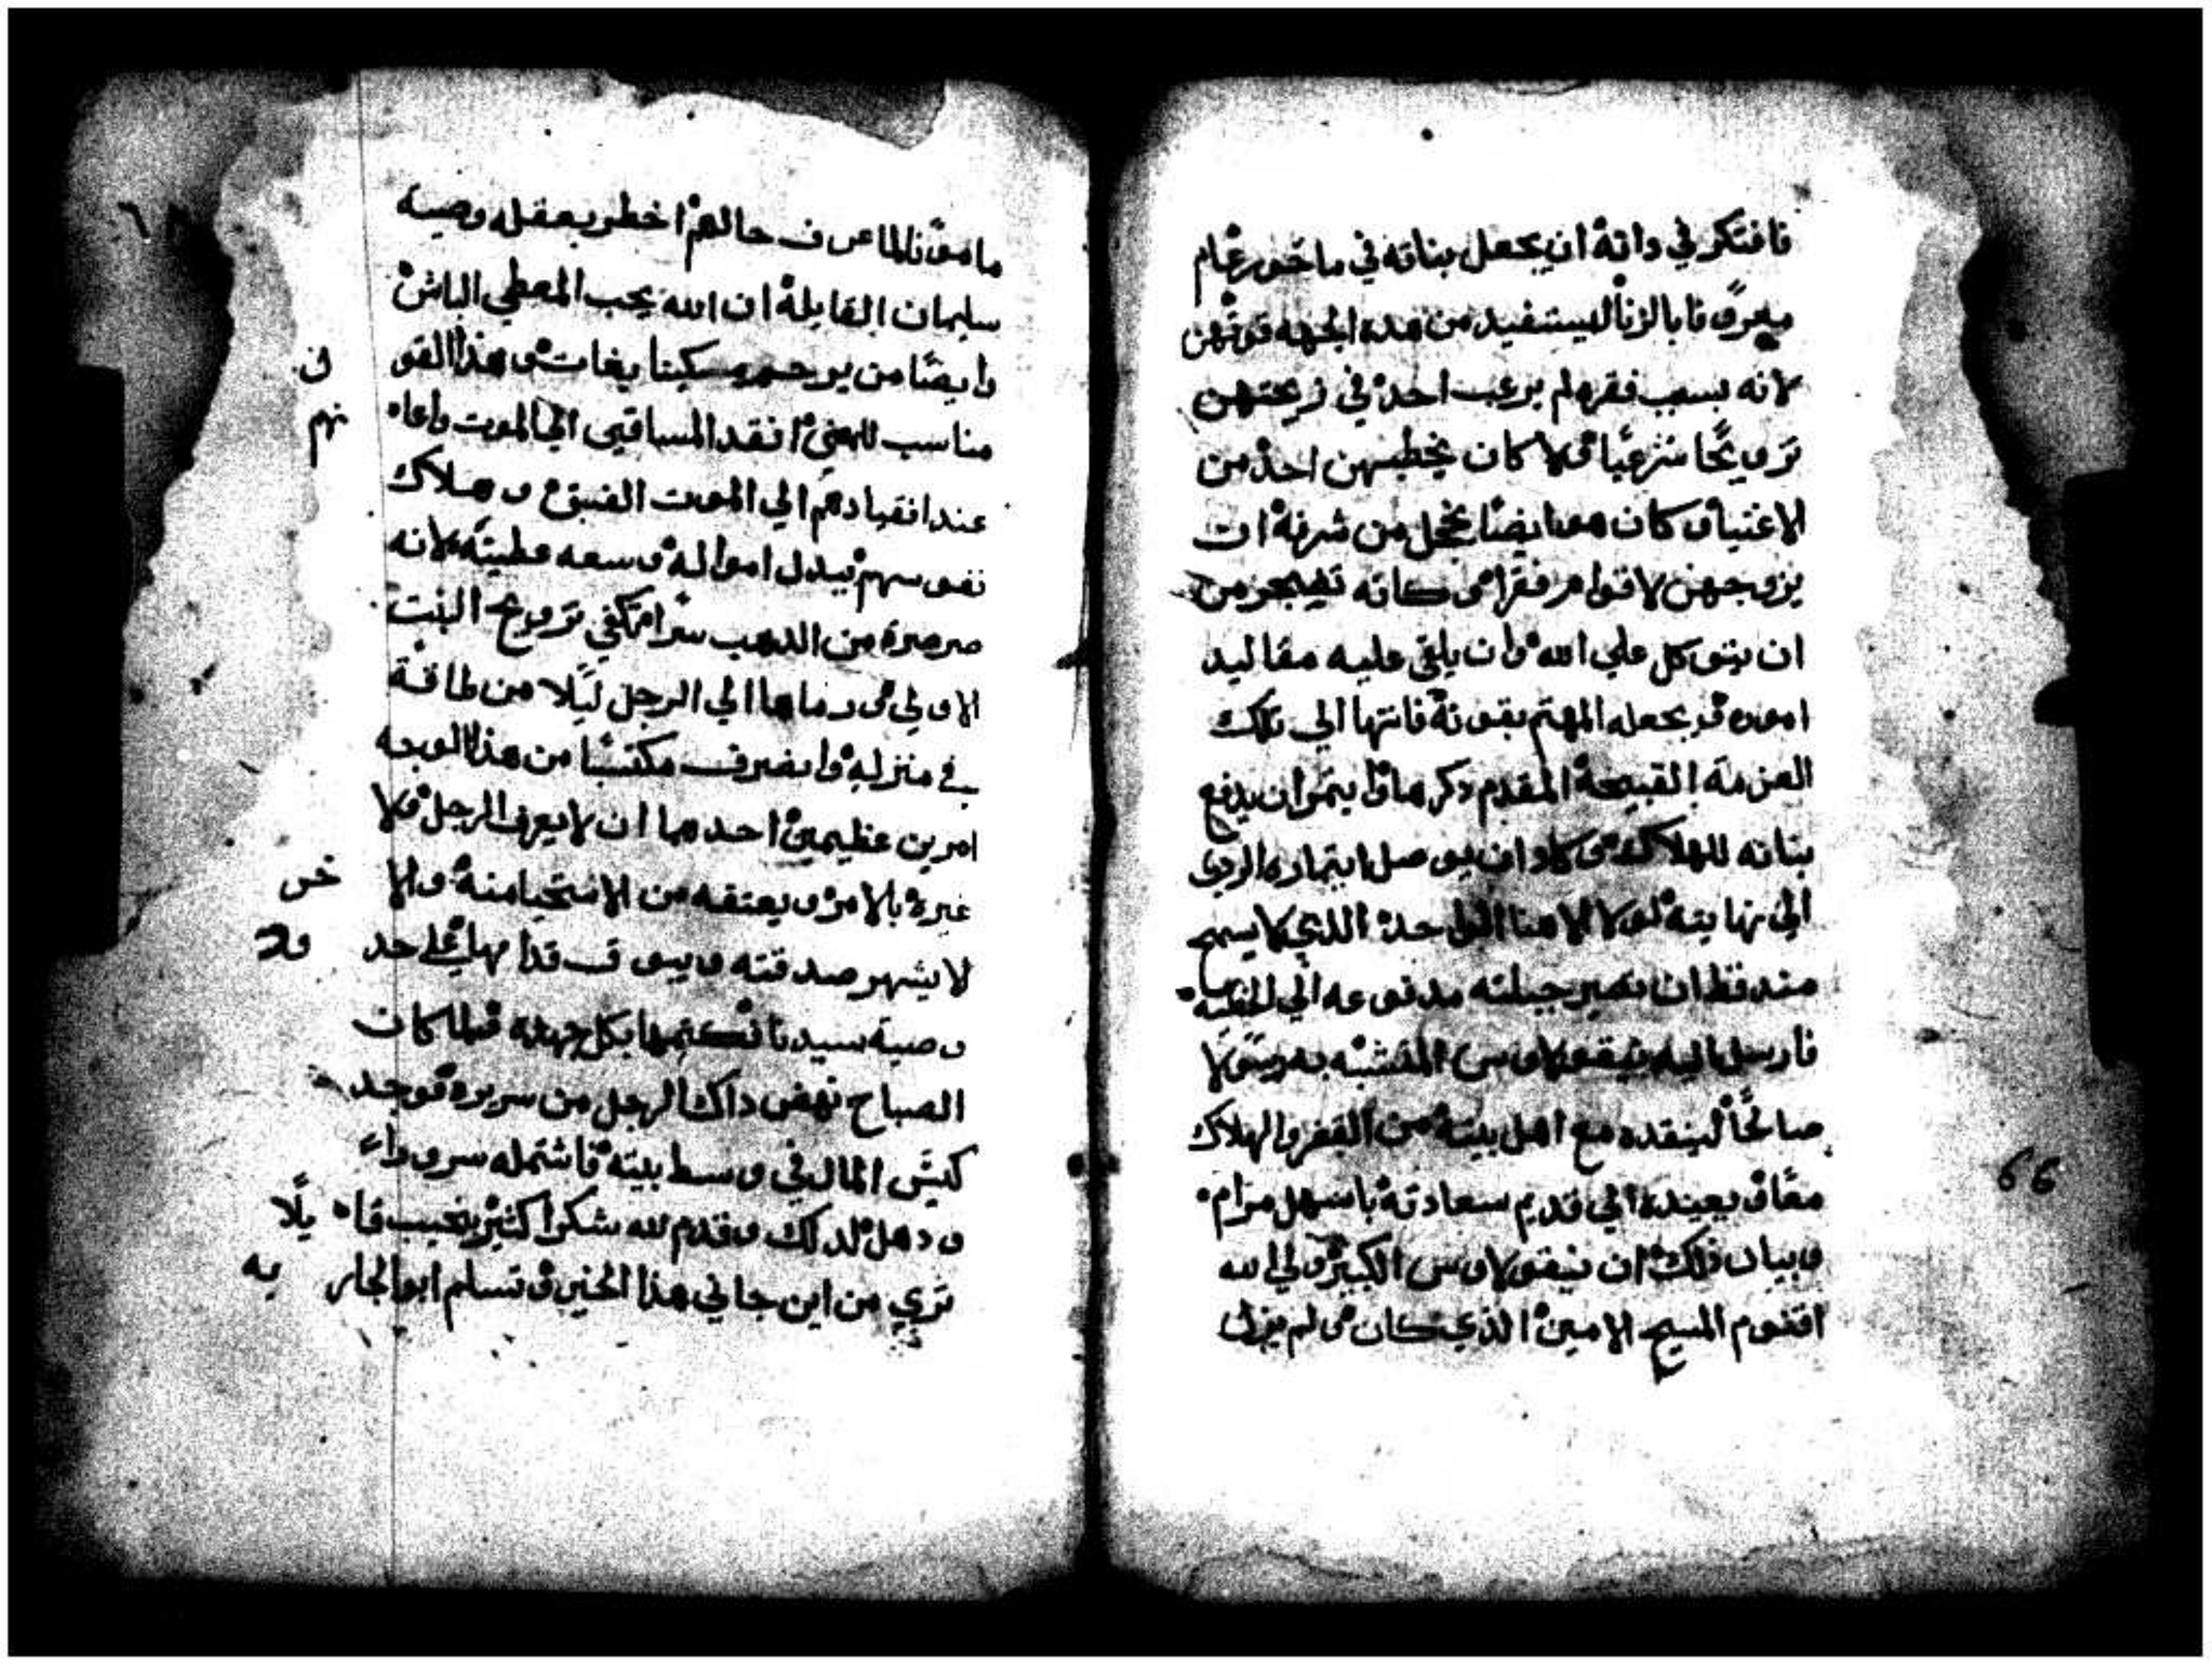 فافتكر في داته ان يجعل بناته في ماخور عام
معروفا بالزنا ليستفيد من هده الجهه قوتهن
لانه بسبب فقره لم يرغب احد في زيجتهن
تزويجا شرعيا ولا كان يخطبهن احد من
الاغنيا وكان هو ايضا يخجل من شرفه ان
يزوجهن لاقوام فقرا وكانه تضجر من
ان يتوكل علي الله وان يلقي عليه مقاليد
اموره ويجعله المهتم بقوته فانتها الي تلك
العزمة القبيحة المقدم دكرها وايتمر ان يدفع
بناته للهلاك وكاد ان يوصل ايتماره الردي
الي نهايته لولا الاهنا الواحد الذي لا يسمح
قط ان تصير جبلته مدفوعه الي الخطيه
فارسل اليه نيقولاوس المتشبه به
صالحا لينقده مع اهل بيته من الفقر والهلاك
معا ويعيده الي قديم سعادته باسهل مرام
وبيان ذلك ان نيقولاوس الكبير ولي الله
اقنوم المسيح الامين الذي كان ولم يزل
66
مامونا لما عرف حالهم اخطر بعقله وصية
سليمان القايلة ان الله يحب المعطي الباش
وايضا من يرحم مسكينا يغات وهذا القو
ف
مناسب للمعني انقد المساقين الي الموت واعا
نهم
عند انقيادهم الي الموت الفسق وهلاك
نفوسهم ببدل امواله وسعه عطيته لانه
صرصرة من الدهب سرا تكفي تزويج البنت
الاولي ورماها الي الرجل ليلا من طاقة
في منزله وانصرف مكتسبا من هذا الوجه
امرين عظيمين احدهما ان لا يعرف الرجل ولا
غيره بالامر ويعتقه من الاستحيا منه والا
خر
لا يشهر صدقته ويبوق قدامها علي حد
وصية سيدنا تكتمها بكل جهده فلما كان
الصباح نهض داك الرجل من سريره فوجد
كيس المال في وسط بيته فاشتمله سرورا
ودهل لدلك وقدم لله شكرا كثير بنحيب قا
يلا
تري من اين جاني هذا الخير وتسلم ابو الجار
يه